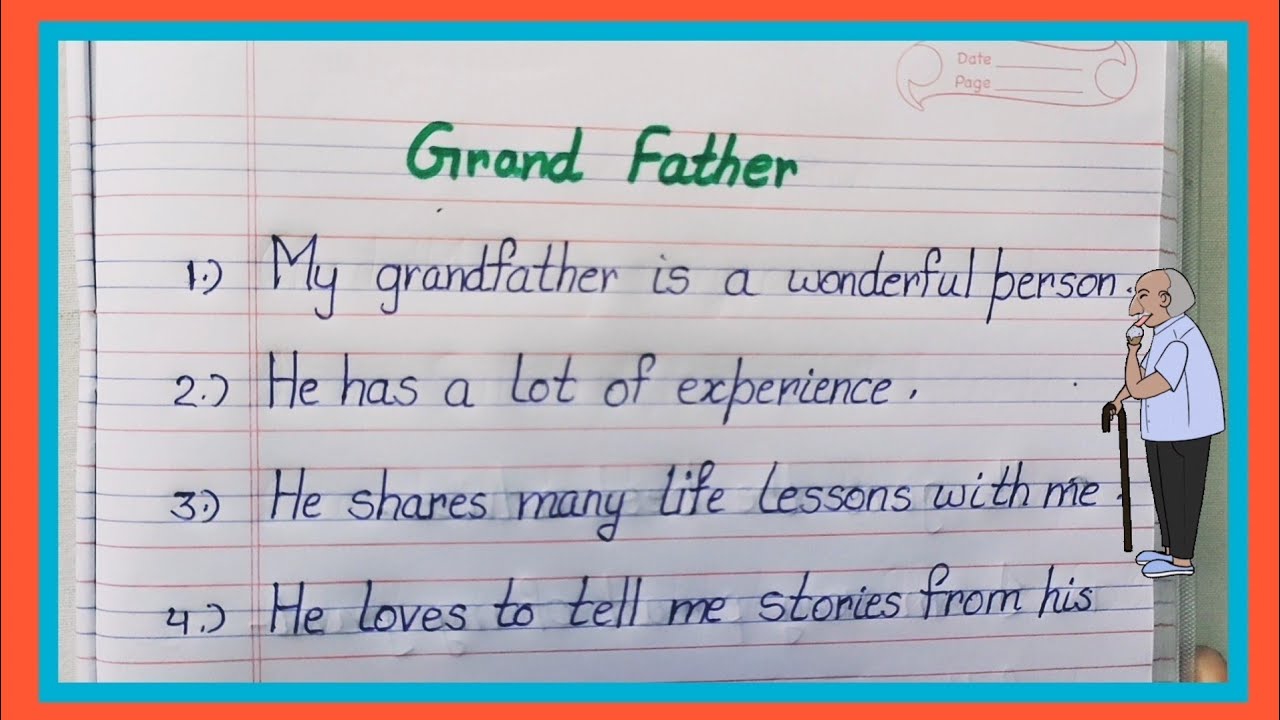 Date
Page
Grand Father
1.) My grandfather is a wonderful person.
2.) He has a lot of experience.
3.) He shares many life lessons with me.
4.) He loves to tell me stories from his